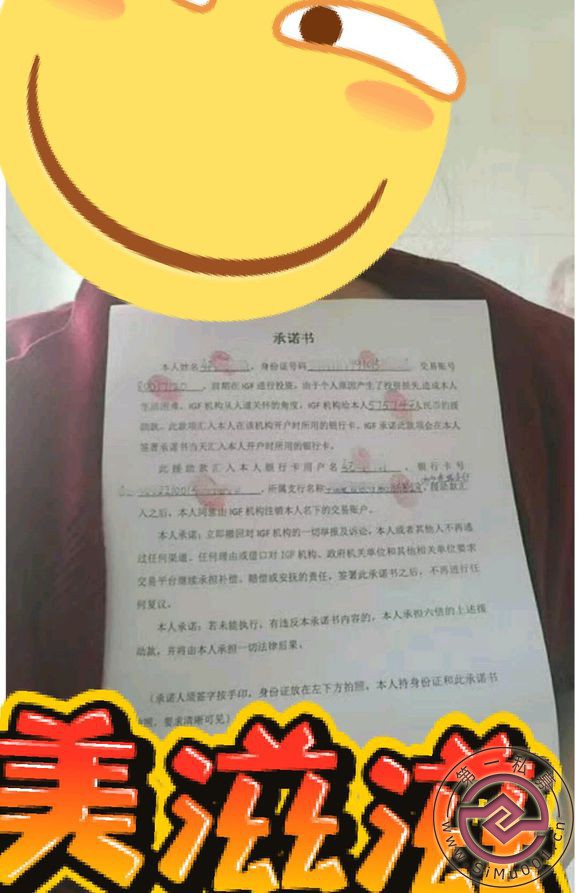 承诺书
本人姓名 ，身份证号码 交易账号
，前期在 IGF 进行投资，由于个人原因产生了投资损失，造成本人
生活困难，IGF 机构从人道关怀的角度，IGF 机构给本人 人民币的援
助款。此款项汇入本人在该机构开户时所用的银行卡。IGF 承诺此款项会在本人
签署承诺书当天汇入本人开户时所用的银行卡。
此援助款汇入本人银行卡用户名 ，银行卡号
，所属支行名称 ，援助款汇
入之后，本人同意由 IGF 机构注销本人名下的交易账户。
本人承诺：立即撤回对 IGF 机构的一切举报及诉讼，本人或者其他人不再通
过任何渠道、任何理由或借口对 IGF 机构、政府机关单位和其他相关单位要求
交易平台继续承担补偿、赔偿或安抚的责任，签署此承诺书之后，不再进行任
何复议。
本人承诺：若未能执行，有违反本承诺书内容的，本人承担六倍的上述援
助款，并将由本人承担一切法律后果。
（承诺人须签字按手印，身份证放在左下方拍照，本人持身份证和此承诺书
照，要求清晰可见）
美滋滋
第一私募